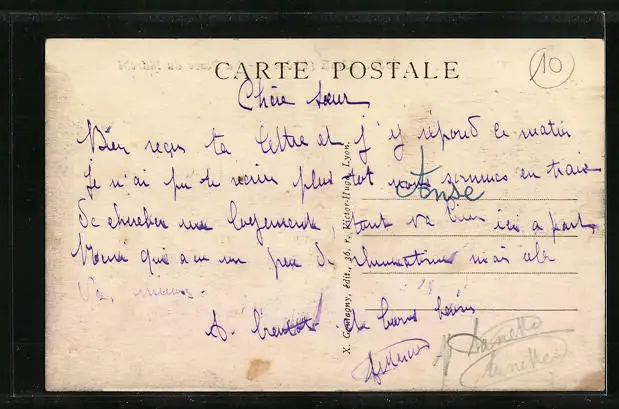 CARTE POSTALE
10
Chère sœur
Bien reçu ta lettre et j'y repond ce matin
Je n'ai pu te ecrire plus tot nous sommes en train
Anse
de chercher un logement, tout va bien ici a part
qui a un peu de rhumatisme mais cela
va mieux.
15
A bientot de bons
X. Goutagny, édit., 36, r. Victor-Hugo, Lyon.